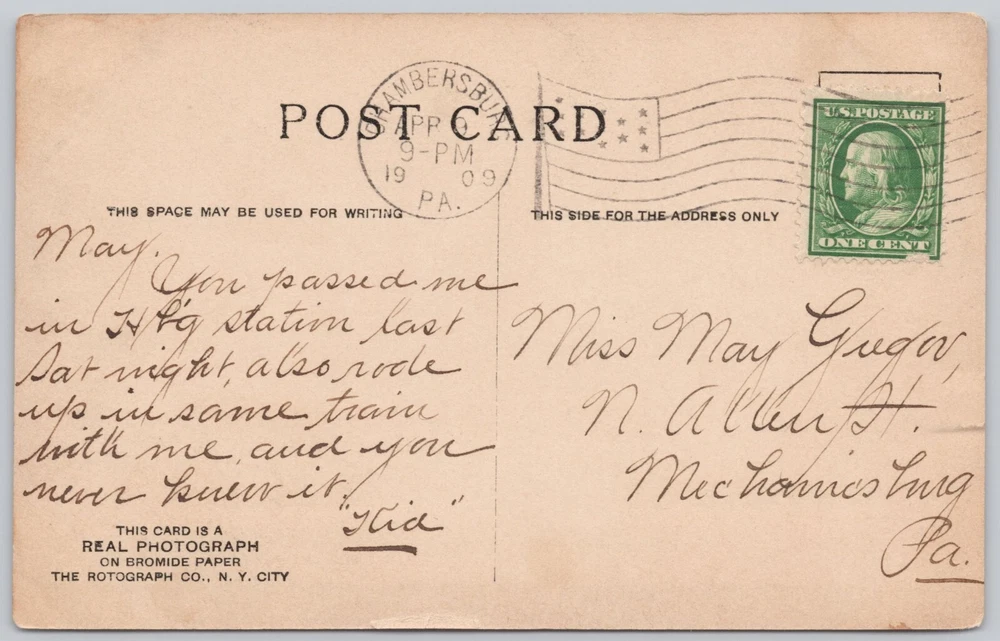 POST CARD
CHAMBERSBURG
APR 9
9-PM
19 09
PA.
U.S. POSTAGE
ONE CENT
THIS SPACE MAY BE USED FOR WRITING
THIS SIDE FOR THE ADDRESS ONLY
May.
You passed me
in H'b'g station last
Sat night, also rode
up in same train
with me, and you
never knew it.
"Kid"
Miss May Gregor,
N. Allen St.
Mechanicsburg
Pa.
THIS CARD IS A
REAL PHOTOGRAPH
ON BROMIDE PAPER
THE ROTOGRAPH CO., N. Y. CITY